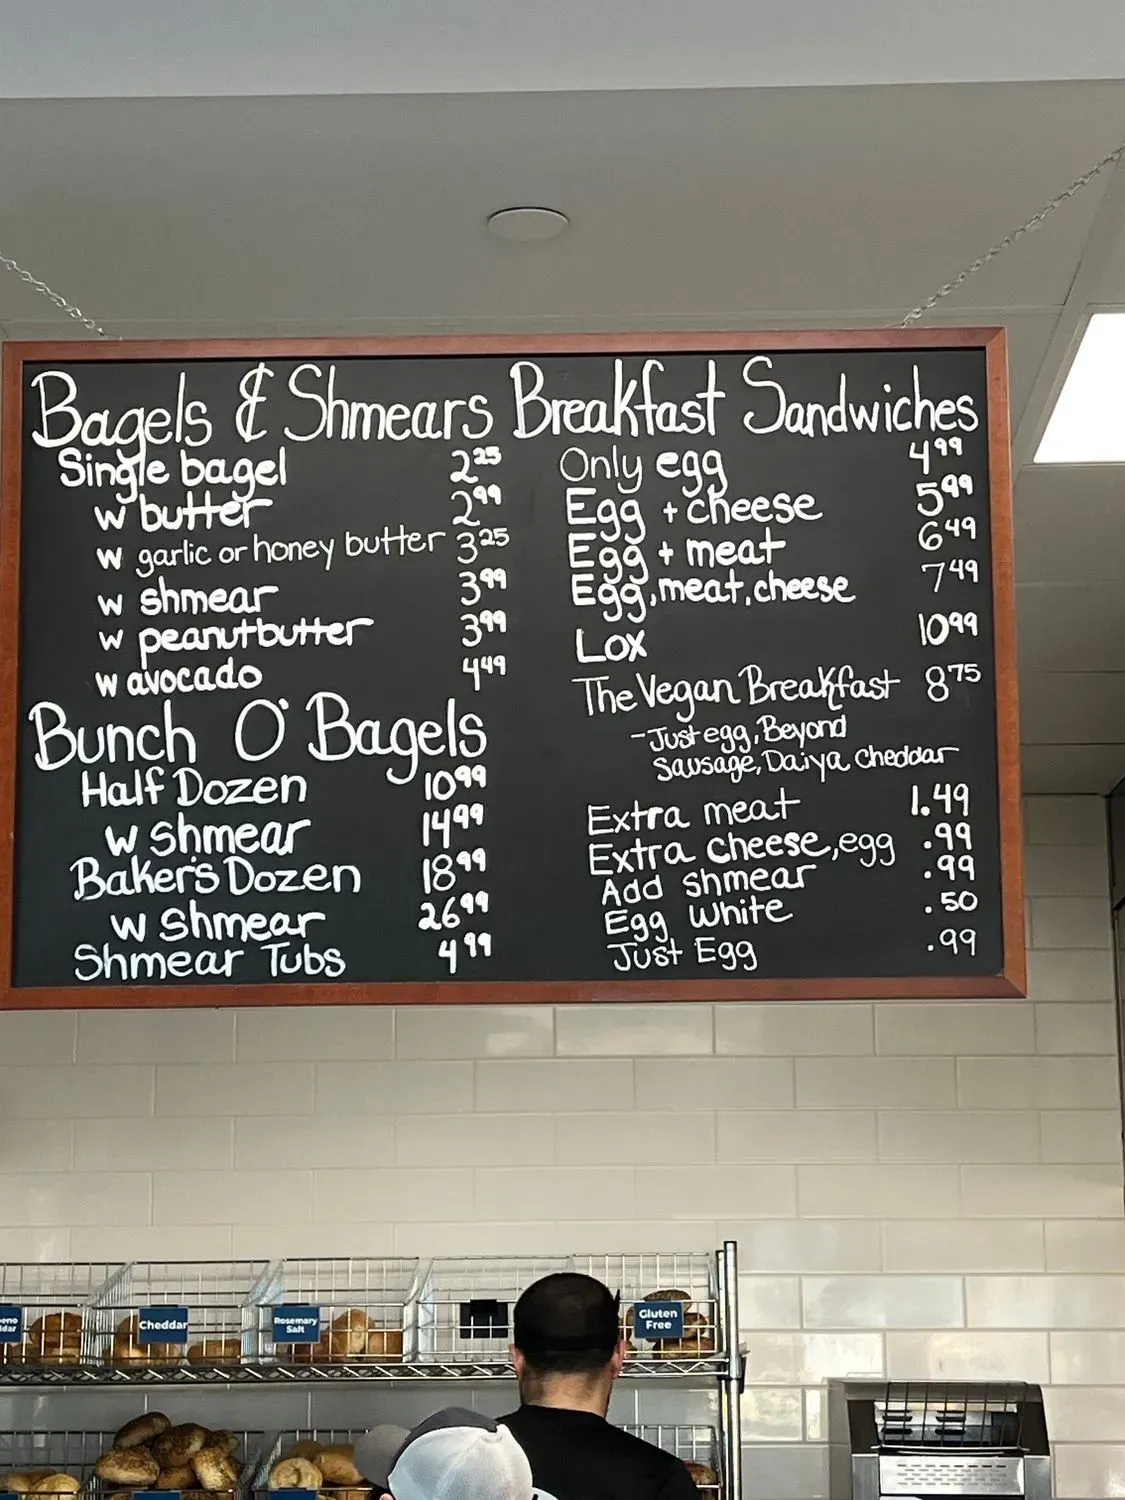 Bagels & Shmears
Single bagel 2.25
w butter 2.99
w garlic or honey butter 3.25
w shmear 3.99
w peanutbutter 3.99
w avocado 4.49
Bunch O' Bagels
Half Dozen 10.99
w shmear 14.99
Baker's Dozen 18.99
w shmear 26.99
Shmear Tubs 4.99
Breakfast Sandwiches
Only egg 4.99
Egg + cheese 5.99
Egg + meat 6.49
Egg, meat, cheese 7.49
Lox 10.99
The Vegan Breakfast 8.75
- Just egg, Beyond
Sausage, Daiya Cheddar
Extra meat 1.49
Extra cheese, egg .99
Add shmear .99
Egg White .50
Just Egg .99
Cheddar
Rosemary
Salt
Gluten
Free